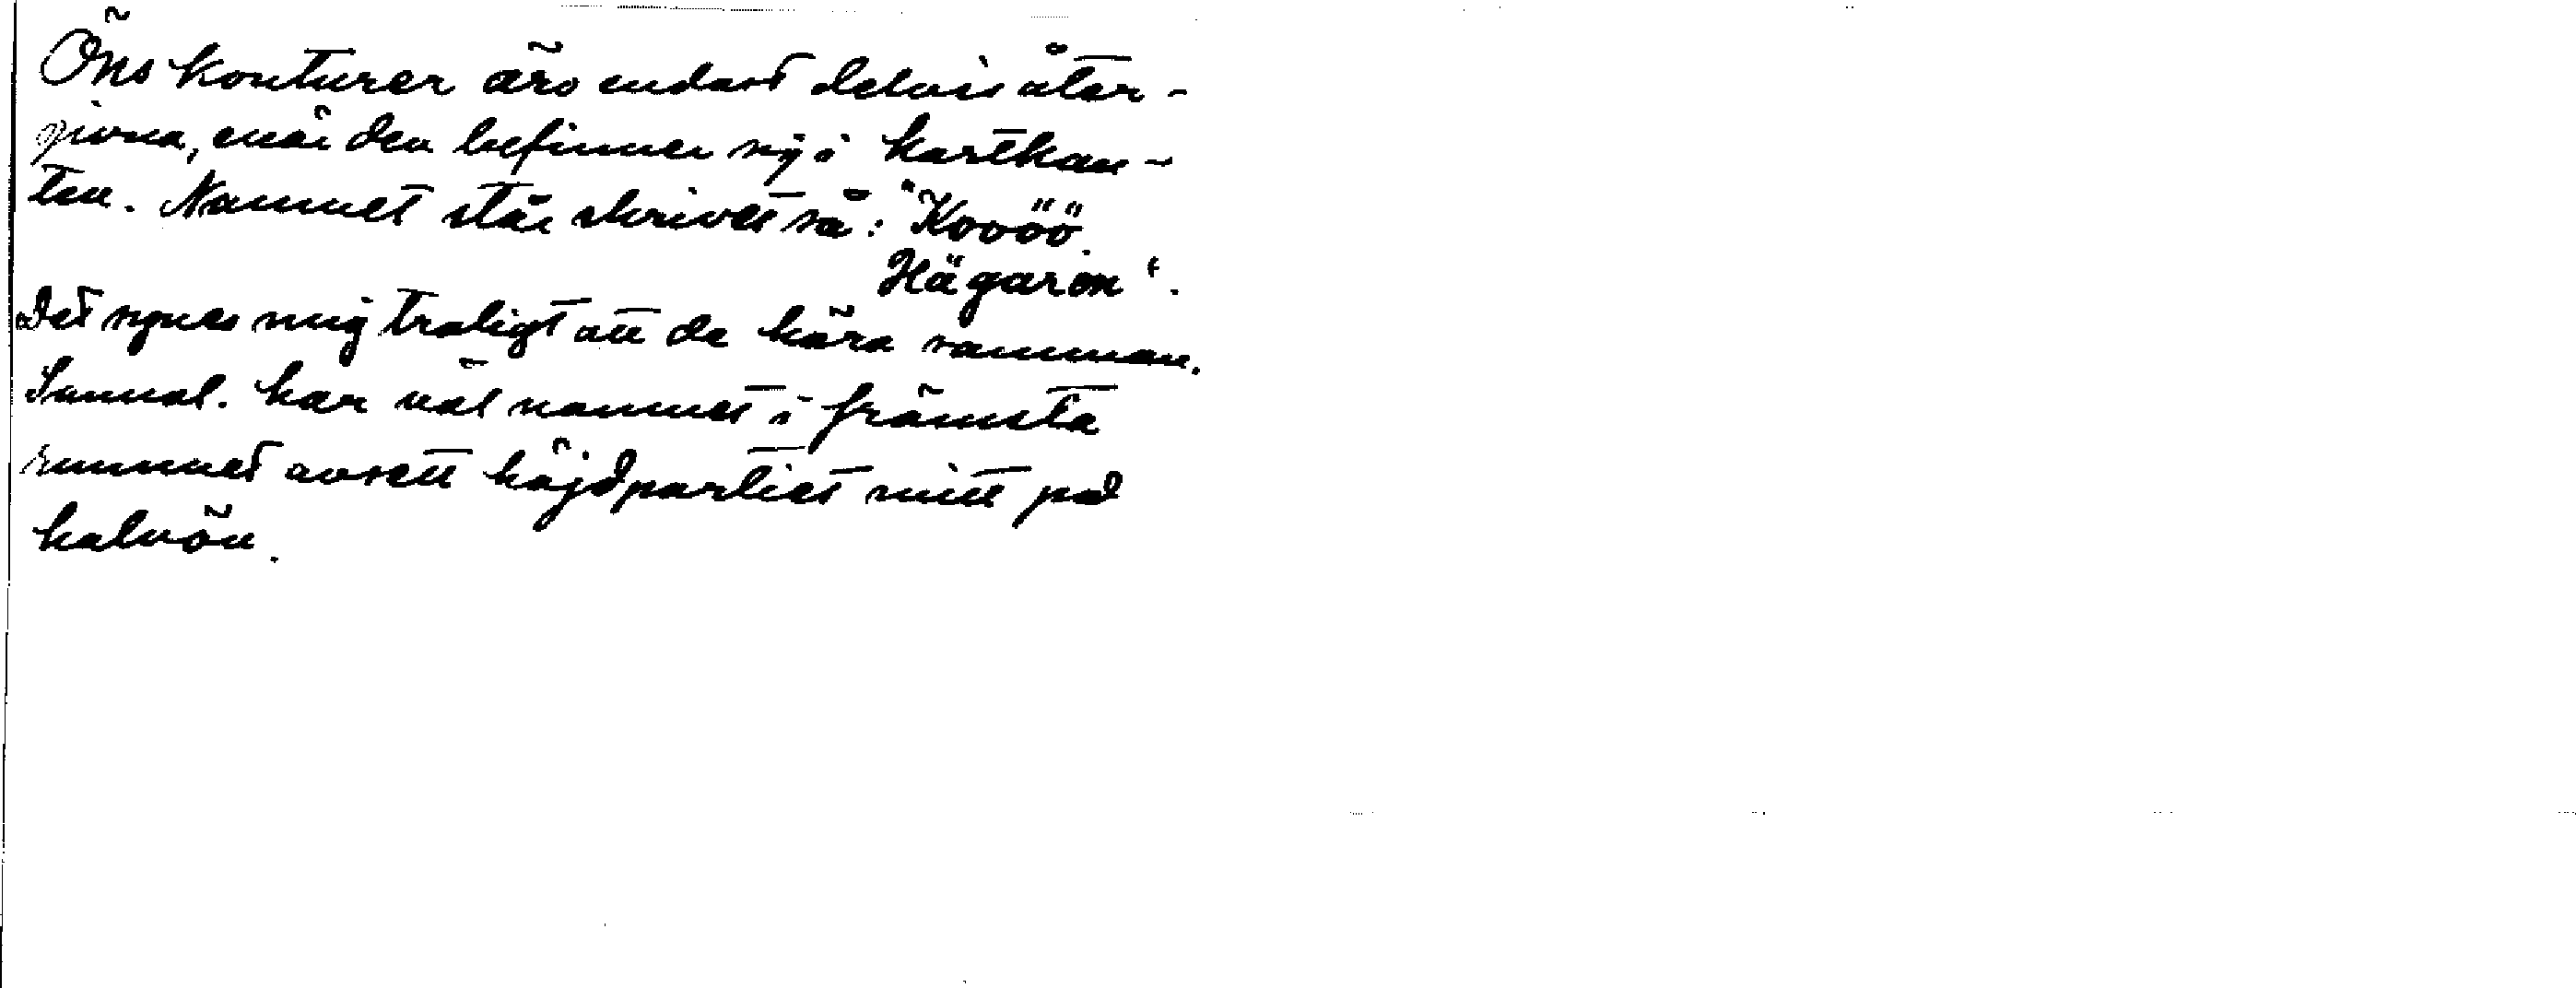 Öns konturer äro endast delvis åter-
givna, enär den befinner sig i kartkan-
ten. Namnet står skrivet så: "Kovöö.
Hägaron".
Det synes mig troligt att de höra samman.
Sannol. har väl namnet i främsta
rummet avsett höjdpartiet mitt på
halvön.